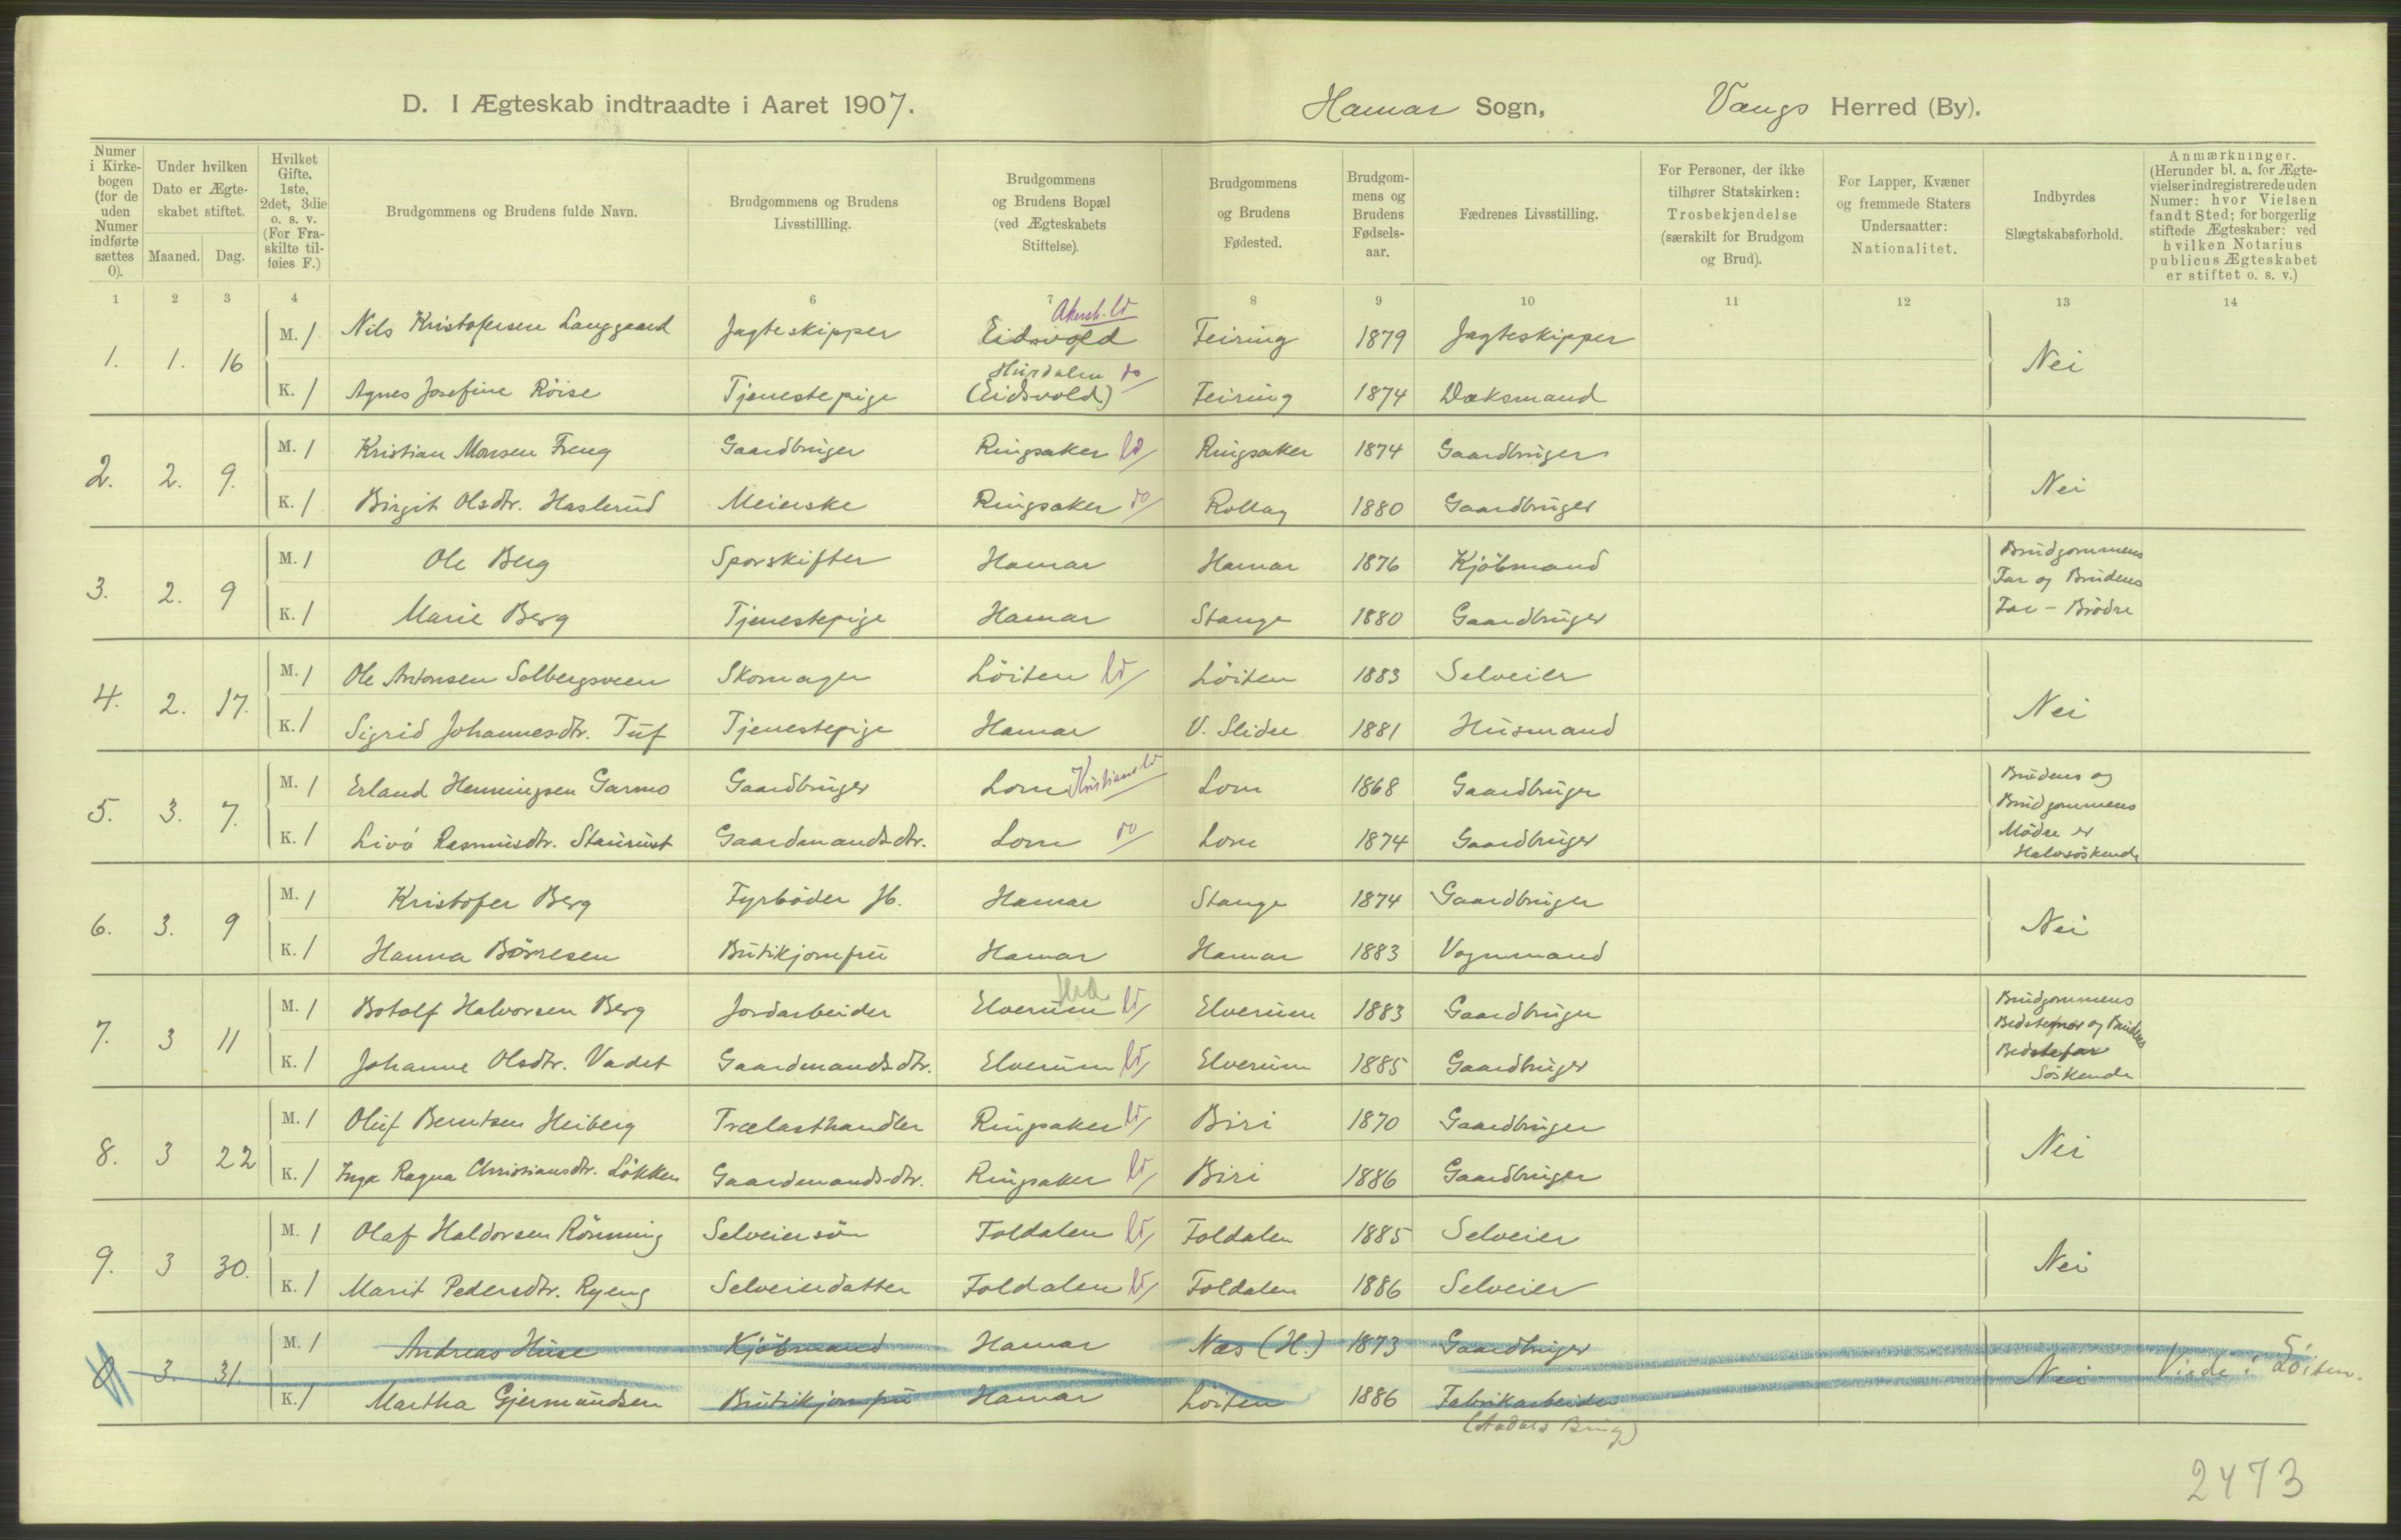 D. I Ægteskab indtraadte i Aaret 1907. Hamar Sogn, Vangs Herred (By).
Numer i Kirkebogen (for de uden Numer indførte sættes 0).
Under hvilken Dato er Ægteskabet stiftet.
Maaned. Dag.
Hvilket Gifte. 1ste, 2det, 3die o. s. v. (For Fraskilte tilføies F.)
Brudgommens og Brudens fulde Navn.
Brudgommens og Brudens Livsstillling.
Brudgommens og Brudens Bopæl (ved Ægteskabets Stiftelse).
Brudgommens og Brudens Fødested.
Brudgommens og Brudens Fødselsaar.
Fædrenes Livsstilling.
For Personer, der ikke tilhører Statskirken: Trosbekjendelse (særskilt for Brudgom og Brud).
For Lapper, Kvæner og fremmede Staters Undersaatter: Nationalitet.
Indbyrdes Slægtskabsforhold.
Anmærkninger. (Herunder bl. a. for Ægtevielser indregistrerede uden Numer: hvor Vielsen fandt Sted; for borgerlig stiftede Ægteskaber: ved hvilken Notarius publicus Ægteskabet er stiftet o. s. v.)
1 2 3 4 6 7 8 9 10 11 12 13 14
1. 1. 16
M. 1 Nils Kristofersen Langgaard Jagteskipper Eidsvold Akersh. ld Feiring 1879 Jagteskipper Nei
K. 1 Agnes Josefine Röise Tjenestepige Hurdalen (Eidsvold) do Feiring 1874 Væksmand
2. 2. 9.
M. 1 Kristian Monsen Freng Gaardbruger Ringsaker ld Ringsaker 1874 Gaardbruger Nei
K. 1 Birgit Olsdtr. Haslerud Meierske Ringsaker do Rollag 1880 Gaardbruger
3. 2. 9
M. 1 Ole Berg Sporskifter Hamar Hamar 1876 Kjöbmand Brudgommens
Far og Brudens
K. 1 Marie Berg Tjenestepige Hamar Stange 1880 Gaardbruger Far - Brödre
4. 2. 17.
M. 1 Ole Antonsen Solbergsveen Skomager Löiten ld Löiten 1883 Selveier Nei
K. 1 Sigrid Johannesdtr. Tuf Tjenestepige Hamar V. Slidre 1881 Husmand
5. 3. 7.
M. 1 Erland Henningsen Garmo Gaardbruger Lom Kristians ld Lom 1868 Gaardbruger Brudens og
Brudgommens
K. 1 Rasmusdtr. Staurust Gaardmandsdtr. Lom do Lom 1874 Gaardbruger Mödre er
Halvsöskende
6. 3. 9
M. 1 Kristofer Berg Fyrböder Jb. Hamar Stange 1874 Gaardbruger Nei
K. 1 Hanna Börresen Butikjomfru Hamar Hamar 1883 Vognmand
7. 3 11
M. 1 Botolf Halvorsen Berg Jordarbeider Elverum ld Elverum 1883 Gaardbruger Brudgommens
Bedstemor og Brudens
K. 1 Johanne Olsdtr. Vadet Gaardmandsdtr. Elverum ld Elverum 1885 Gaardbruger Bedstefar
Söskende
8. 3 22
M. 1 Oluf Berntsen Heiberg Trælasthandler Ringsaker ld Biri 1870 Gaardbruger Nei
K. 1 Inga Ragna Christiansdtr. Lökken Gaardmandsdtr. Ringsaker ld Biri 1886 Gaardbruger
9. 3 30.
M. 1 Olaf Haldorsen Rönning Selveiersön Foldalen ld Foldalen 1885 Selveier Nei
K. 1 Marit Pedersdtr. Ryeng Selveierdatter Foldalen ld Foldalen 1886 Selveier
0 3. 31.
M. 1 Andreas Huse Kjöbmand Hamar Næs (H.) 1873 Gaardbruger Nei Viede i Löiten.
K. 1 Martha Gjermundsen Butikjomfru Hamar Löiten 1886 Fabrikarbeider
(Aadals Brug)
2473